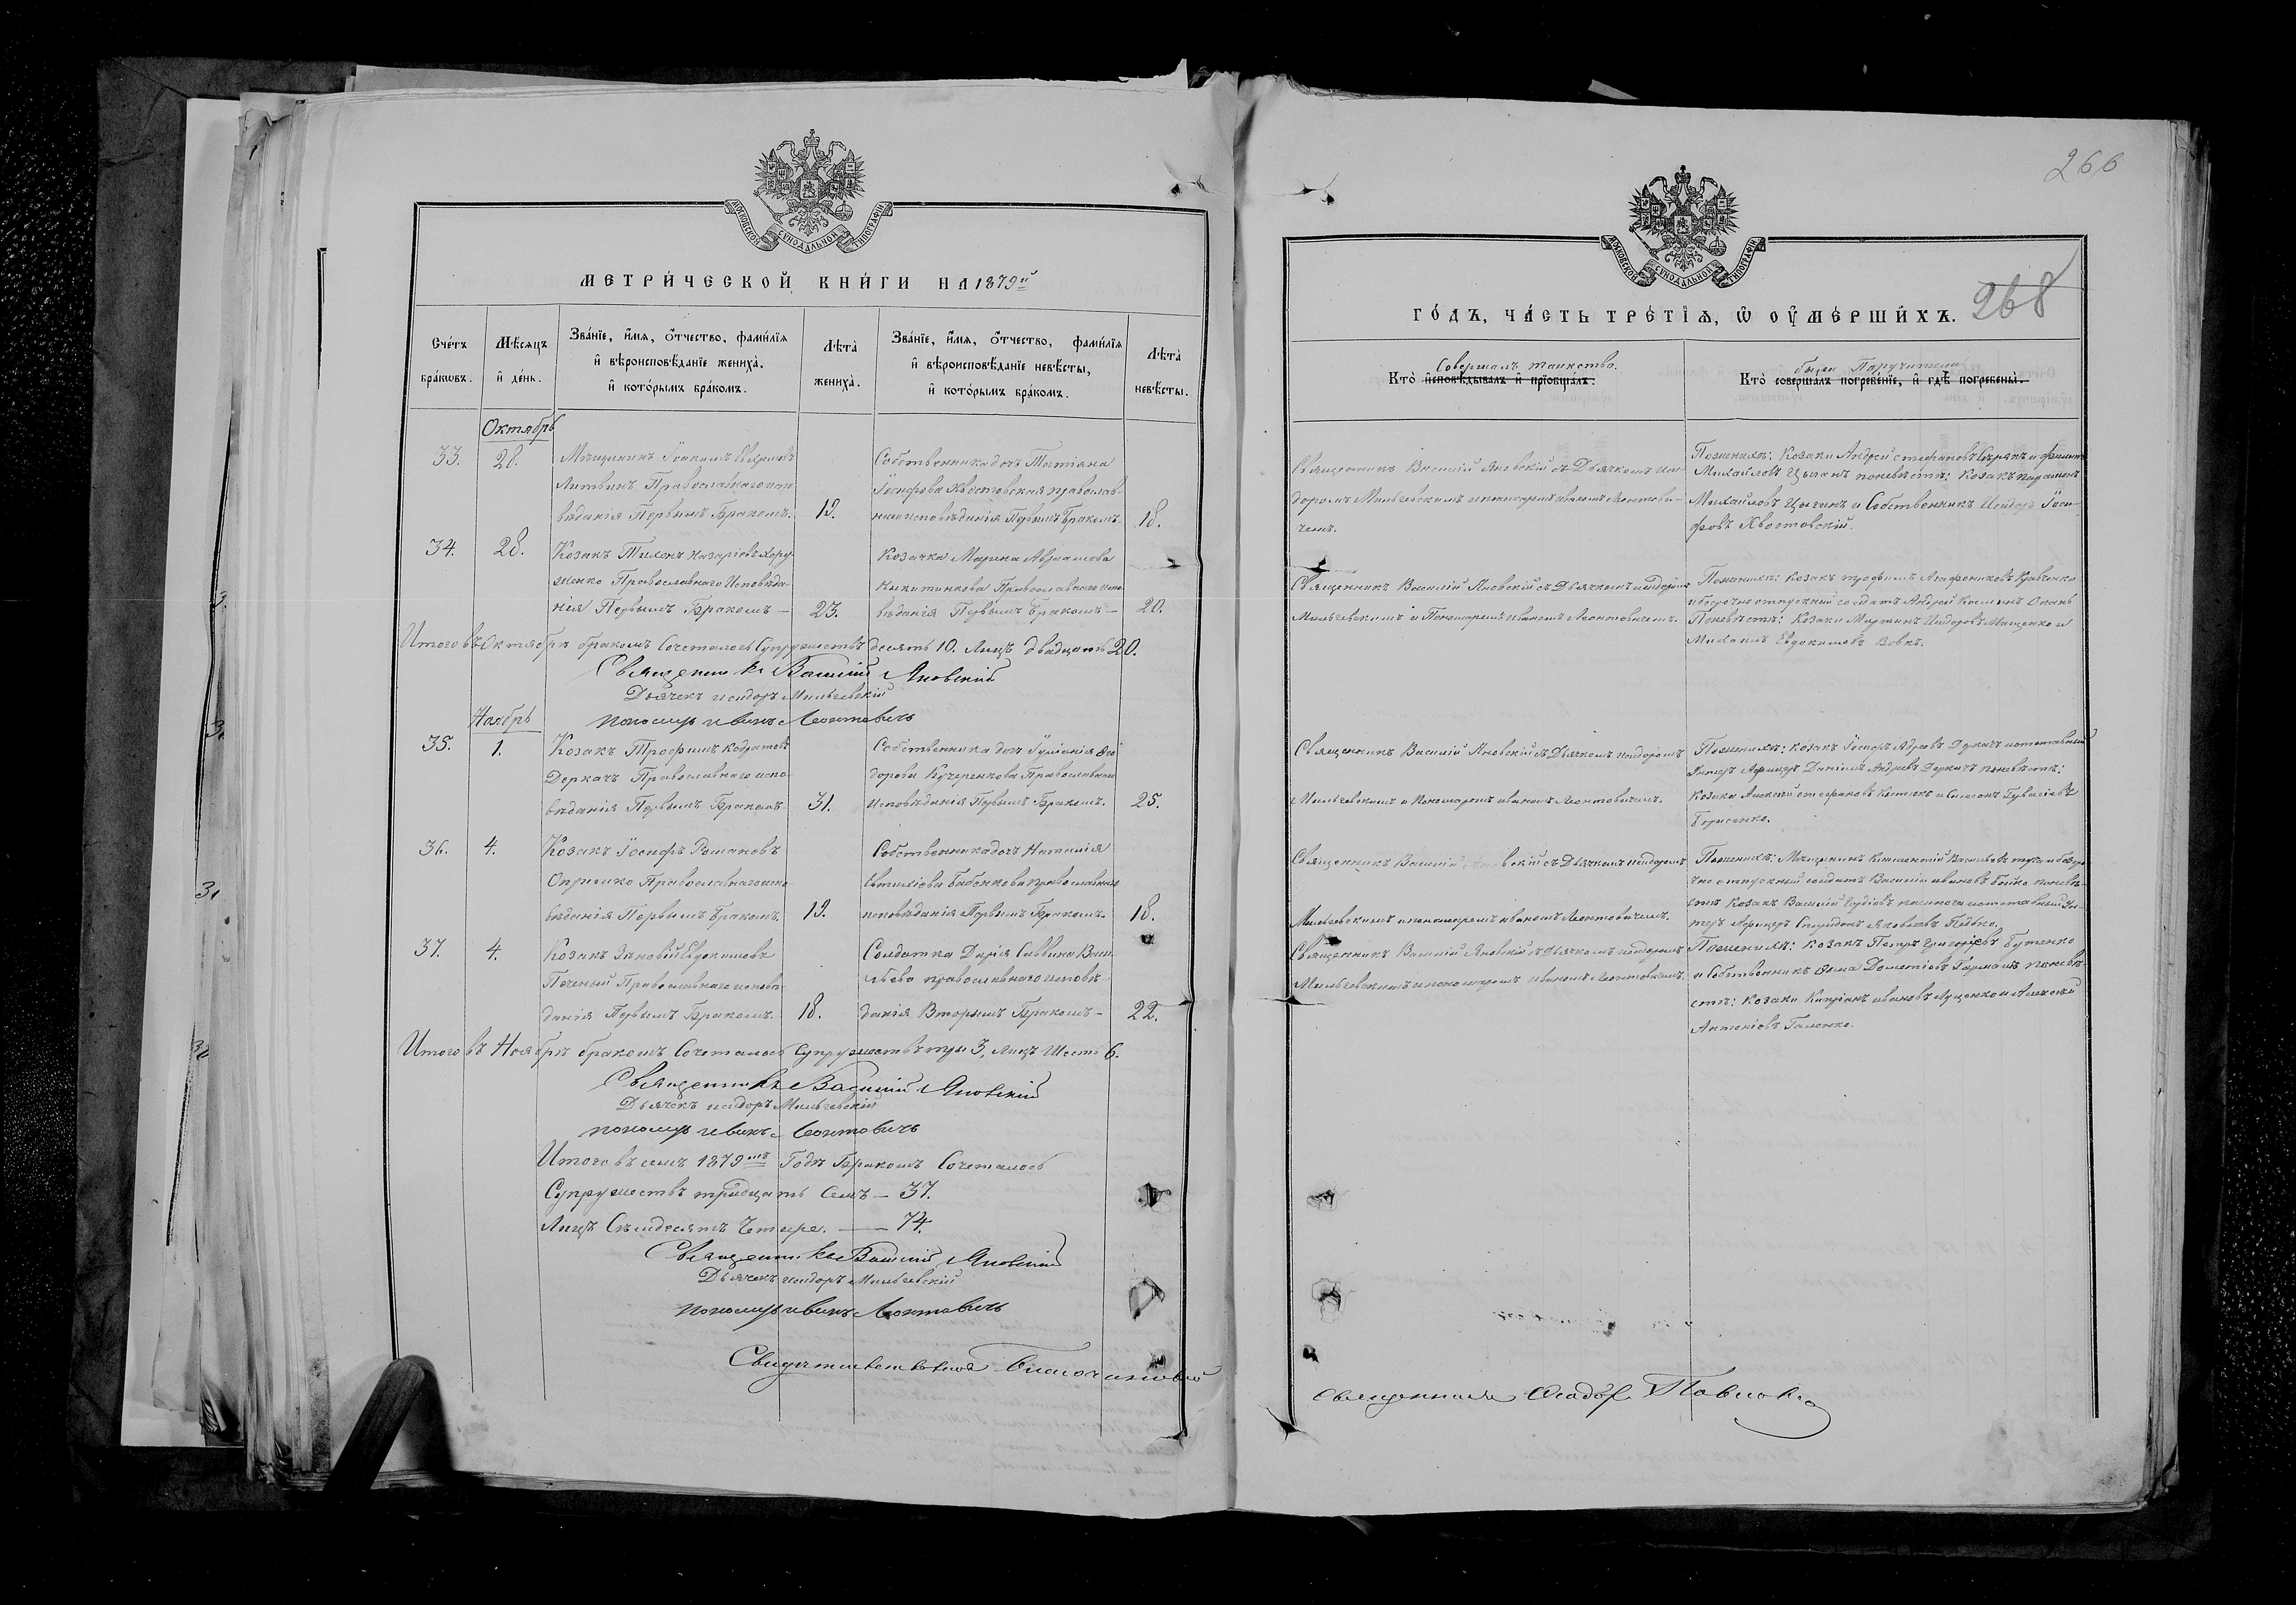 266
МОСКОВСКОЙ СѴНОДАЛЬНОЙ ТИПОГРАФІИ
МЕТРИ́ЧЕСКОЙ КНИ́ГИ НА 1879й
Сче́тъ бра́кωвъ.
Мѣ́сяцъ и҆ де́нь.
Зва́нїе, и҆́мя, ѻ҆́тчество, фами́лїя
и҆ вѣроисповѣ́данїе жениха̀,
и҆ кото́рымъ бра́комъ.
Лѣ́та̀ жениха̀.
Зва́нїе, и҆́мя, ѻ҆́тчество, фами́лїя
и҆ вѣроисповѣ́данїе невѣ́сты,
и҆ кото́рымъ бра́комъ.
Лѣ́та̀ невѣ́сты.
Октябрь
33. 28.
Мѣщанинъ Іоакимъ
Литвинъ Православнаго испо
вѣданія Первымъ Бракомъ. 19.
Собственника дочь Татіана
Іосифова Хвостовская православ-
наго исповѣданія Первымъ Бракомъ. 18.
34. 28.
Козакъ Назаріевъ Хору
женко Православнаго Исповѣда
нія Первымъ Бракомъ — 23.
Козачка Марина
Никитинкова Православнаго испо
вѣданія Первымъ Бракомъ — 20.
Итого въ Октябрѣ бракомъ Сочеталось Супружествъ десять 10. Лицъ двадцать 20.
Священникъ Василій Яновскій
Дьячекъ исидоръ Мильчевскій
пономарь иванъ Леонтовичъ
Ноябрь
35. 1.
Козакъ Трофимъ Кодратовъ
Деркачъ Православнаго испо
вѣданія Первымъ Бракомъ 31.
Собственника дочь Іуліанія Фео
дорова Кучеренкова Православнаго
Исповѣданія Первымъ Бракомъ. 25.
36. 4.
Козакъ Іосифъ Романовъ
Опришко Православнаго испо
вѣданія Первымъ Бракомъ. 19.
Собственника дочь Наталія
Евтихіева Бабенкова православнаго
исповѣданія Первымъ Бракомъ. 18.
37. 4.
Козакъ Зиновій Евдокимовъ
Печеный Православнаго исповѣ
данія Первымъ Бракомъ. 18.
Солдатка Дарія Саввина Васи
льева православнаго исповѣ-
данія Вторымъ Бракомъ — 22.
Итого въ Ноябрѣ бракомъ Сочеталось Супружествъ три 3, лицъ Шесть 6.
Священникъ Василій Яновскій
Дьячекъ исидоръ Мильчевскій
пономарь иванъ Леонтовичъ
Итого въ семъ 1879мъ Годѣ Бракомъ Сочеталось
Супружествъ тридцать семъ — 37.
Лицъ Семдесятъ Четыре. — 74.
Священникъ Василій Яновскій
Дьячекъ исидоръ Мильчевскій
пономарь иванъ Леонтовичъ
Свидетельствовалъ Благочинный
МОСКОВСКОЙ СѴНОДАЛЬНОЙ ТИПОГРАФІИ
ГО́ДЪ, ЧА́СТЬ ТРЕ́ТЇЯ, Ѡ҆ ОУ҆МЕ́РШИХЪ. 268
Совершалъ таинство.
Кто̀ и҆сповѣ́дывалъ и҆ прїобща́лъ.
были Паручители
Кто̀ соверша́лъ погребе́нїе, и҆ гдѣ̀ погребены̀.
Священникъ Василій Яновскій съ Дьячкомъ иси-
доромъ Мильчевскимъ и пономаремъ иваномъ Леонтови-
чемъ.
Поженихѣ: Козаки Андрей стефановъ и филипъ
Михайловъ Цыганъ поневѣстѣ: Козакъ
Михайловъ Цыганъ и Собственникъ Исидоръ Іоси-
фовъ Хвостовскій.
Священникъ Василій Яновскій съ Дьячкомъ исидоромъ
Мильчевскимъ и Пономаремъ иваномъ Леонтовичемъ.
Поженихѣ: Козакъ трофимъ Агафониковъ Кравченко
и безсрочно отпускный солдатъ Андрей
Поневѣстѣ: Козаки Мартинъ Исидоровъ Мищенко и
Михаилъ Евдокимовъ Вовкъ.
Священникъ Василій Яновскій съ Дьячкомъ исидоромъ
Мильчевскимъ и Пономаремъ иваномъ Леонтовичемъ.
Поженихѣ: Козакъ Іосифъ Деркачъ и отставный
Унтеръ Афицеръ Даніилъ Андреевъ Деркачъ поневѣстѣ:
Козаки Алексѣй стефановъ Костюкъ и Симеонъ
Борисенко.
Священникъ Василій вскій съ Дьячкомъ исидоромъ
Мильчевскимъ и пономаремъ иваномъ Леонтовичемъ.
Поженихѣ: Мѣщанинъ Климентій Васильевъ и безсро
чно отпускный солдатъ Василій ивановъ Бойко поневѣ-
стѣ Козакъ Василій и отставный Ун-
теръ Афицеръ Спиридонъ Яковлевъ
Священникъ Василій Яновскій съ Дьячкомъ исидоромъ
Мильчевскимъ и пономаремъ иваномъ Леонтовичемъ.
Поженихѣ: Козакъ Петръ Григоріевъ Бутенко
и Собственникъ Фома Дометіевъ поневѣ-
стѣ: Козаки Кипріанъ ивановъ Луценко и Алексѣй
Антоніевъ
Священникъ Феодоръ Павлов